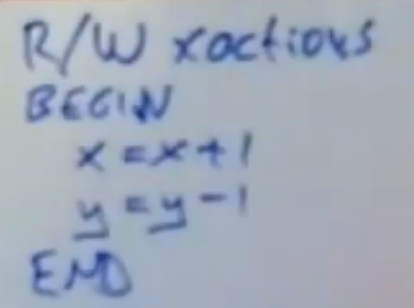 R/W xactions
BEGIN
x = x + 1
y = y - 1
END